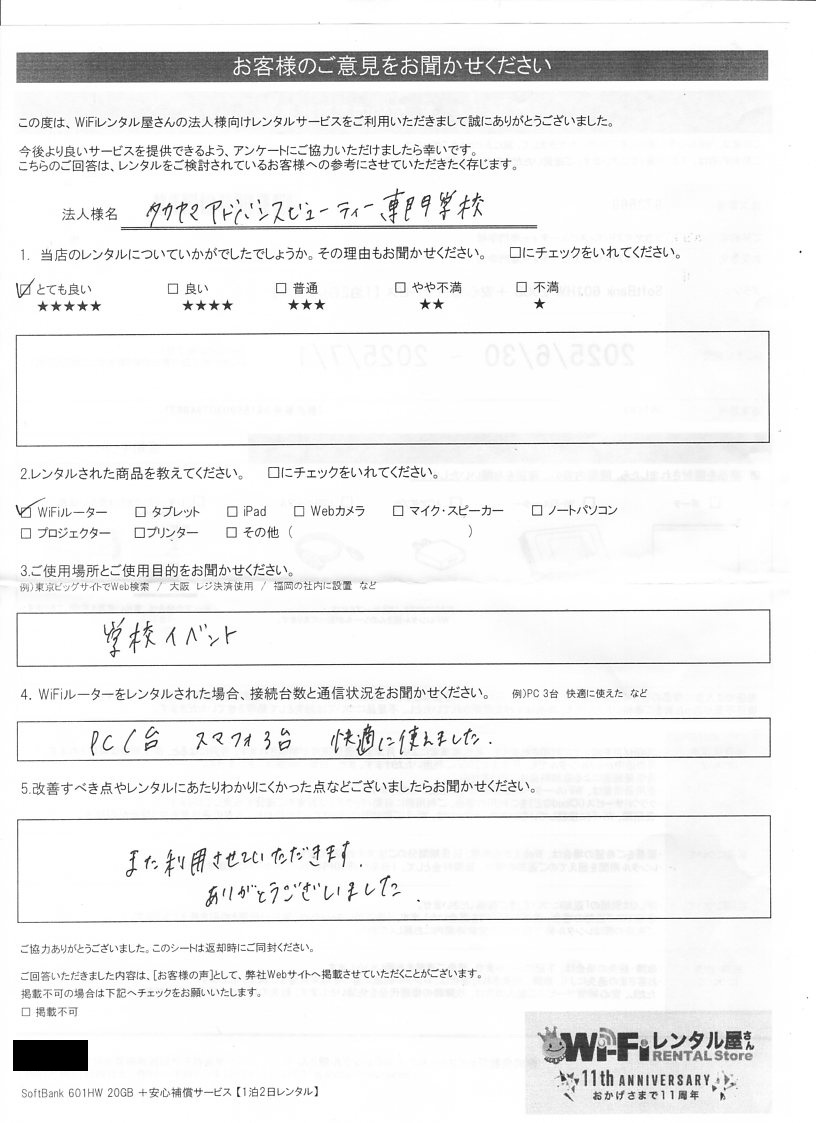 お客様のご意見をお聞かせください
この度は、WiFiレンタル屋さんの法人様向けレンタルサービスをご利用いただきまして誠にありがとうございました。
今後より良いサービスを提供できるよう、アンケートにご協力いただけましたら幸いです。
こちらのご回答は、レンタルをご検討されているお客様への参考にさせていただきたく存じます。
法人様名 タカヤマアドバンスビューティー専門学校
1. 当店のレンタルについていかがでしたでしょうか。その理由もお聞かせください。 □にチェックをいれてください。
☑ とても良い □ 良い □ 普通 □ やや不満 □ 不満
★★★★★ ★★★★ ★★★ ★★ ★
2.レンタルされた商品を教えてください。 □にチェックをいれてください。
☑ WiFiルーター □ タブレット □ iPad □ Webカメラ □ マイク・スピーカー □ ノートパソコン
□ プロジェクター □プリンター □ その他 ( )
3.ご使用場所とご使用目的をお聞かせください。
例)東京ビッグサイトでWeb検索 / 大阪 レジ決済使用 / 福岡の社内に設置 など
学校イベント
4. WiFiルーターをレンタルされた場合、接続台数と通信状況をお聞かせください。 例)PC 3台 快適に使えた など
PC1台 スマフォ3台 快適に使えました.
5.改善すべき点やレンタルにあたりわかりにくかった点などございましたらお聞かせください。
また利用させていただきます.
ありがとうございました.
ご協力ありがとうございました。このシートは返却時にご同封ください。
ご回答いただきました内容は、[お客様の声]として、弊社Webサイトへ掲載させていただくことがございます。
掲載不可の場合は下記へチェックをお願いいたします。
□ 掲載不可
Wi-Fiレンタル屋さん
RENTAL Store
11th ANNIVERSARY
おかげさまで11周年
SoftBank 601HW 20GB +安心補償サービス【1泊2日レンタル】